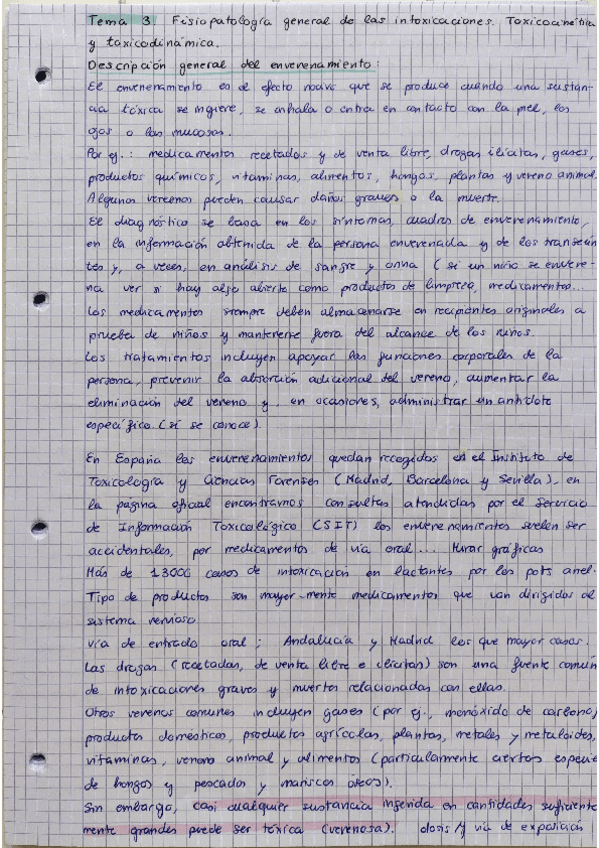 Tema 3. Fisiopatología general de las intoxicaciones. Toxicocinética
y toxicodinámica.
Descripción general del envenenamiento:
El envenenamiento es el efecto nocivo que se produce cuando una sustan-
cia tóxica se ingiere, se inhala o entra en contacto con la piel, los
ojos o las mucosas.
Por ej.: medicamentos recetados y de venta libre, drogas ilícitas, gases,
productos químicos, vitaminas, alimentos, hongos, plantas y veneno animal.
Algunos venenos pueden causar daños graves o la muerte.
El diagnóstico se basa en los síntomas, cuadros de envenenamiento,
en la información obtenida de la persona envenenada y de los transeún
tes y, a veces, en análisis de sangre y orina (si un niño se envene-
na ver si hay algo abierto como productos de limpieza, medicamentos...
Los medicamentos siempre deben almacenarse en recipientes originales a
prueba de niños y mantenerse fuera del alcance de los niños.
Los tratamientos incluyen apoyar las funciones corporales de la
persona, prevenir la absorción adicional del veneno, aumentar la
eliminación del veneno y, en ocasiones, administrar un antídoto
específico (si se conoce).
En España los envenenamientos quedan recogidos en el Instituto de
Toxicología y Ciencias Forenses (Madrid, Barcelona y Sevilla), en
la página oficial encontramos consultas atendidas por el Servicio
de Información Toxicológico (SIT) los envenenamientos suelen ser
accidentales, por medicamentos de vía oral... Mirar gráficas
Más de 13000 casos de intoxicación en lactantes por los pots
Tipo de productos son mayor-mente medicamentos que van dirigidos al
sistema nervioso.
vía de entrada oral; Andalucía y Madrid los que mayor casos.
Las drogas (recetadas, de venta libre e ilícitas) son una fuente común
de intoxicaciones graves y muertes relacionadas con ellas.
Otros venenos comunes incluyen gases (por ej., monóxido de carbono,
productos domésticos, productos agrícolas, plantas, metales y metaloides,
vitaminas, veneno animal y alimentos (particularmente ciertas especie
de hongos y pescados y mariscos óseos).
Sin embargo, casi cualquier sustancia ingerida en cantidades suficiente
mente grandes puede ser tóxica (venenosa). dosis y vía de exposición